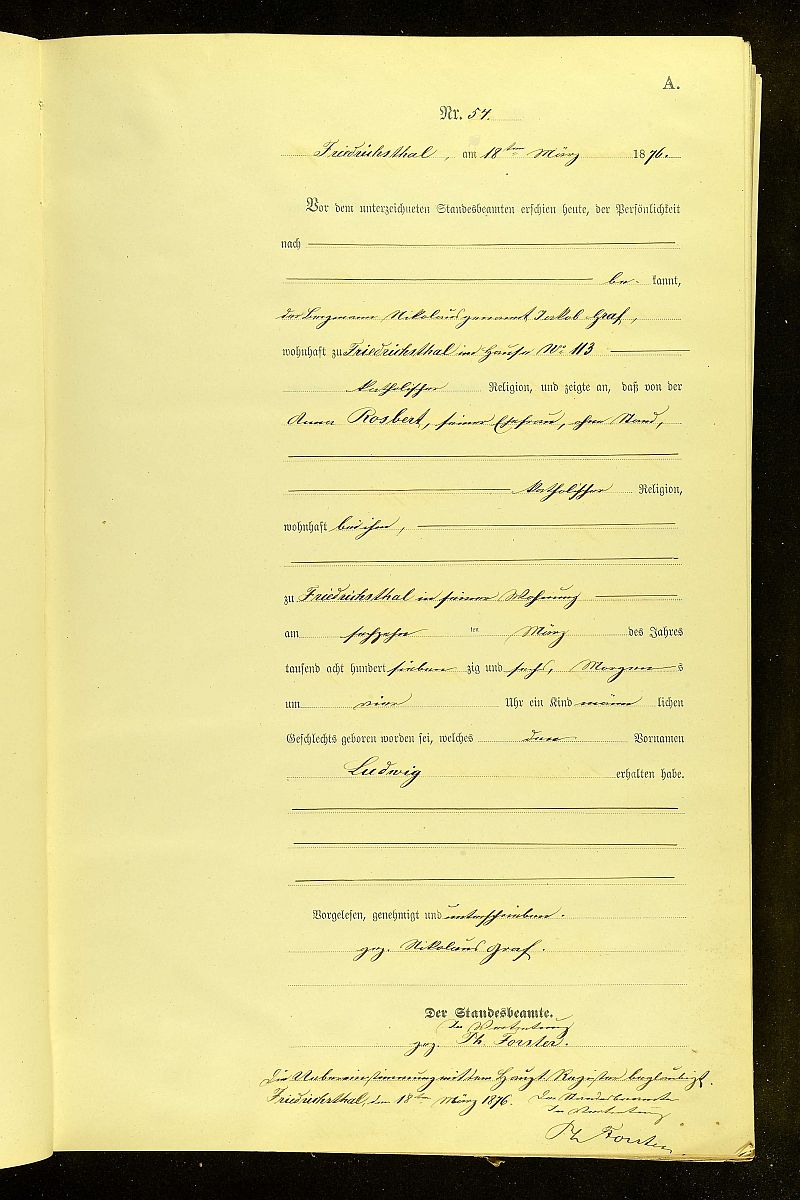 A.
Nr. 54.
Friedrichsthal, am 18ten März 1876.
Vor dem unterzeichneten Standesbeamten erschien heute, der Persönlichkeit
nach
be- kannt,
der Bergmann Nikolaus genannt Jakob Graf,
wohnhaft zu Friedrichsthal im Hause No 113
katholischer Religion, und zeigte an, daß von der
Anna Rosbert, seiner Ehefrau, ohne Stand,
katholischer Religion,
wohnhaft bei ihm,
zu Friedrichsthal in seiner Wohnung
am sechzehn ten März des Jahres
tausend acht hundert sieben zig und sechs, Morgen s
um vier Uhr ein Kind männ lichen
Geschlechts geboren worden sei, welches den Vornamen
Ludwig erhalten habe.
Vorgelesen, genehmigt und unterschrieben.
gez. Nikolaus Graf.
Der Standesbeamte.
In Vertretung
gez. Th. Forster.
Die Uebereinstimmung mit dem Haupt-Register beglaubigt.
Friedrichsthal, den 18ten März 1876. Der Standesbeamte
In Vertretung
Th Forster